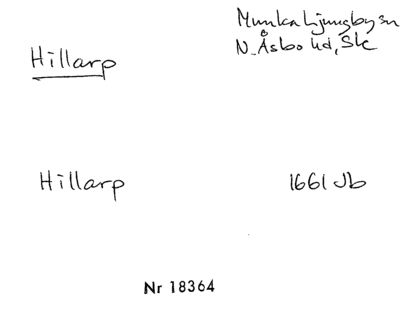 Hillarp
Munka Ljungby sn
N. Åsbo hd, Sk
Hillarp
1661 Jb
Nr 18364